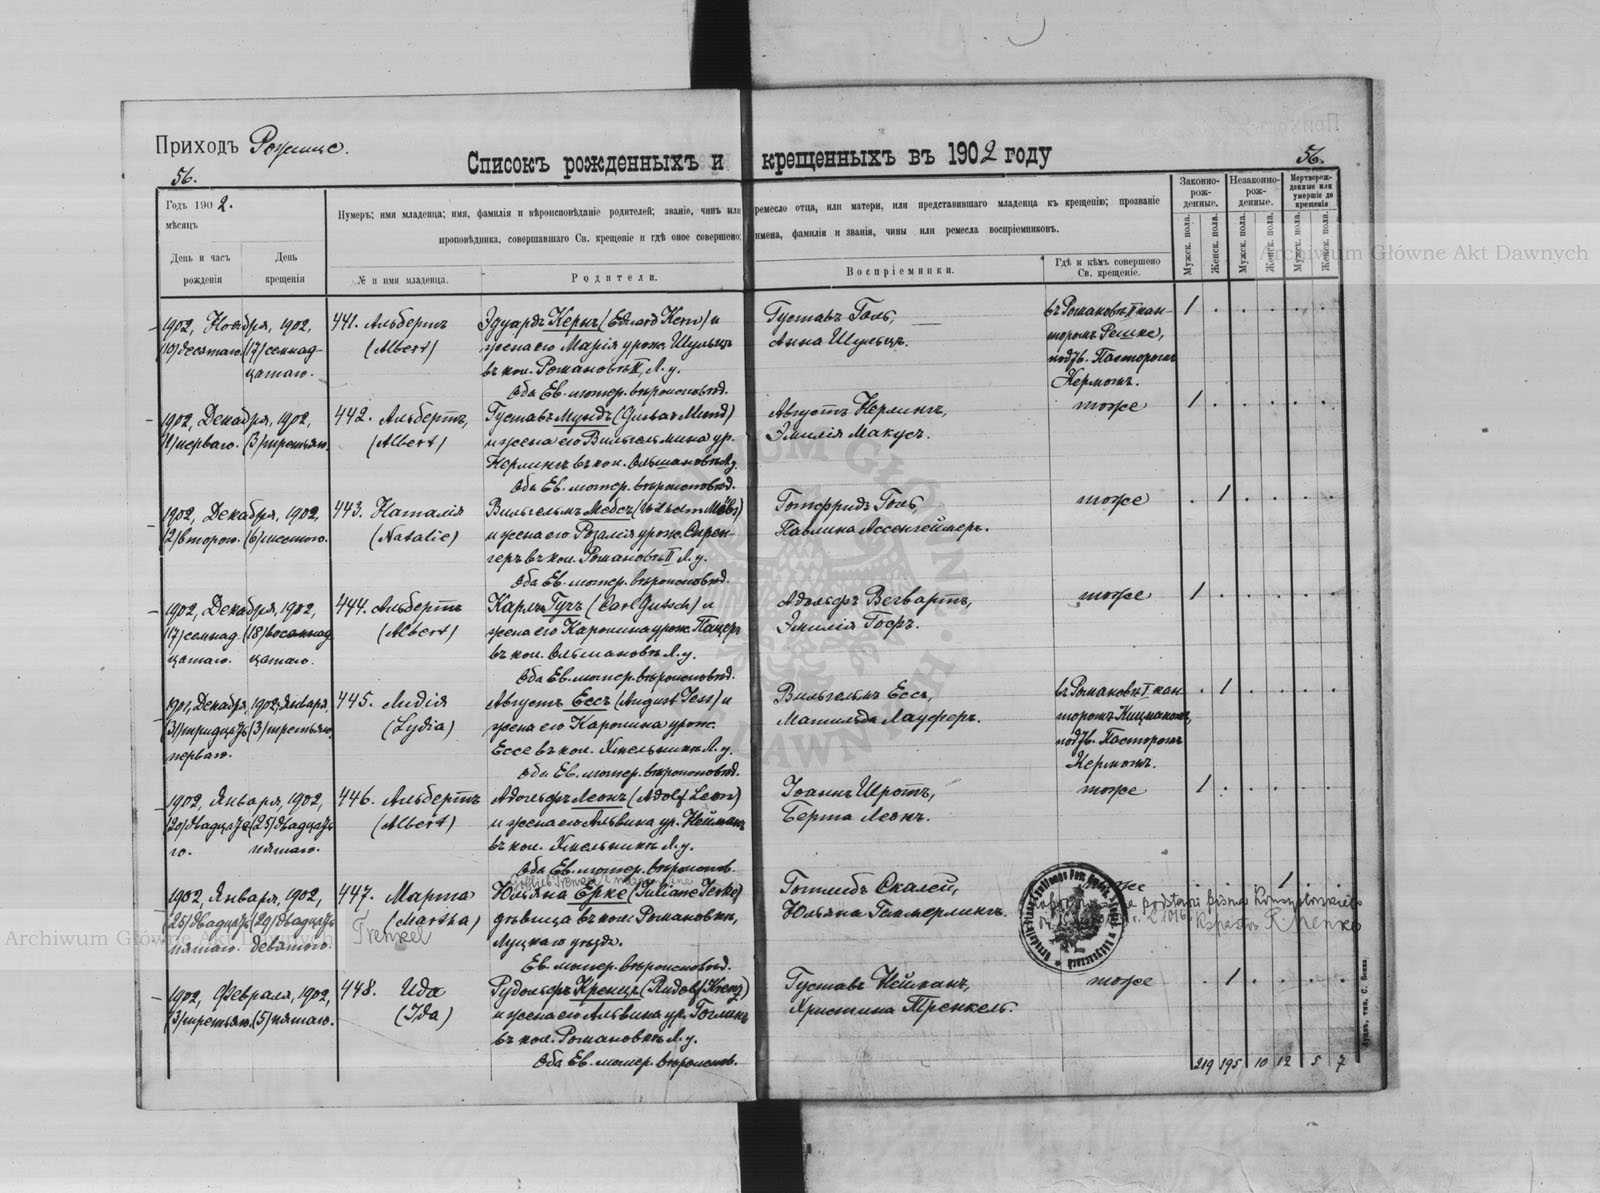 Приходъ Рожище.
56.
Списокъ рожденныхъ и крещенныхъ въ 1902 году
56.
Годъ 1902.
мѣсяцъ
День и часъ рожденія
День крещенія
Нумеръ; имя младенца; имя, фамилія и вѣроисповѣданіе родителей; званіе, чинъ или ремесло отца, или матери, или представившаго младенца къ крещенію; прозваніе
проповѣдника, совершавшаго Св. крещеніе и гдѣ оное совершено; имена, фамиліи и званія, чины или ремесла воспріемниковъ.
№ и имя младенца.
Родители.
Воспріемники.
Гдѣ и кѣмъ совершено Св. крещеніе.
Законно-рож-денные.
Незаконно-рож-денные.
Мертворож-денные или умершіе до крещенія
Мужск. пола.
Женск. пола.
Мужск. пола.
Женск. пола.
Мужск. пола.
Женск. пола.
Archiwum Główne Akt Dawnych
1902, Ноября, 1902, 441. Альбертъ Эдуардъ Кернъ (Eduard Kern) и Густавъ Голь, въ Романовкѣ II кан-
(10) десятаго. (17) семнад- (Albert) жена его Марія урож. Шульцъ Анна Шульцъ. торомъ Решке,
цатаго. въ кол. Романовкѣ II, Л. у. подтв. Пасторомъ
Оба Ев. лютер. вѣроисповѣд. Кермомъ.
1902, Декабря, 1902, 442. Альбертъ, Густавъ Мундъ (Gustav Mund) Августъ Керлингъ, тоже
(1) перваго. (3) третьяго. (Albert) и жена его Вильгельмина ур. Эмилія Макусъ.
Керлингъ въ кол. Ольгановкѣ Л. у.
Оба Ев. лютер. вѣроисповѣд.
1902, Декабря, 1902, 443. Наталія Вильгельмъ Мебсъ (Wilhelm Mebs) Готфридъ Голь, тоже
(2) второго. (6) шестого. (Natalie) и жена его Розалія урож. Спрен- Павлина Ассенгеймеръ.
геръ въ кол. Романовкѣ II Л. у.
Оба Ев. лютер. вѣроисповѣд.
1902, Декабря, 1902, 444. Альбертъ Карлъ Гутъ (Carl Gutsch) и Адольфъ Вегвартъ, тоже
(17) семнад- (18) восемнад- (Albert) жена его Каролина урож. Пацеръ Эмилія Гофъ.
цатаго. цатаго. въ кол. Ольгановкѣ Л. у.
Оба Ев. лютер. вѣроисповѣд.
1901, Декабря, 1902, Января, 445. Лидія Августъ Ессъ (August Jess) и Вильгельмъ Ессъ, въ Романовкѣ I кан-
(31) тридцать (3) третьяго. (Lydia) жена его Каролина урож. Матильда Лауферъ. торомъ Кицманомъ,
перваго. Ессе въ кол. Хмельникѣ Л. у. подтв. Пасторомъ
Оба Ев. лютер. вѣроисповѣд. Кермомъ.
1902, Января, 1902, 446. Альбертъ Адольфъ Леонъ (Adolf Leon) Іоаннъ Шротъ, тоже
(20) двадцата- (25) двадцать (Albert) и жена его Альвина ур. Нейманъ Берта Леонъ.
го. пятаго. въ кол. Хмельникѣ Л. у.
Оба Ев. лютер. вѣроисповѣд.
1902, Января, 1902, 447. Марта Юльяна Ерке (Juliane Jerke) Готлибъ Скалей, тоже
(25) двадцать (29) двадцать (Martha) дѣвица въ кол. Романовкѣ, Юльяна Геммерлингъ.
пятаго. девятаго. Trenkel Луцкаго уѣзда.
Ев. лютер. вѣроисповѣд.
1902, Февраля, 1902, 448. Ида Рудольфъ Кренцъ (Rudolf Krenz) Густавъ Нейманъ, тоже
(3) третьяго. (5) пятаго. (Ida) и жена его Альвина ур. Гоглинъ Христина Тренкель.
въ кол. Романовкѣ Л. у.
Оба Ев. лютер. вѣроисповѣд.
219 195 10 12 5 7
Archiwum Główne Akt Dawnych